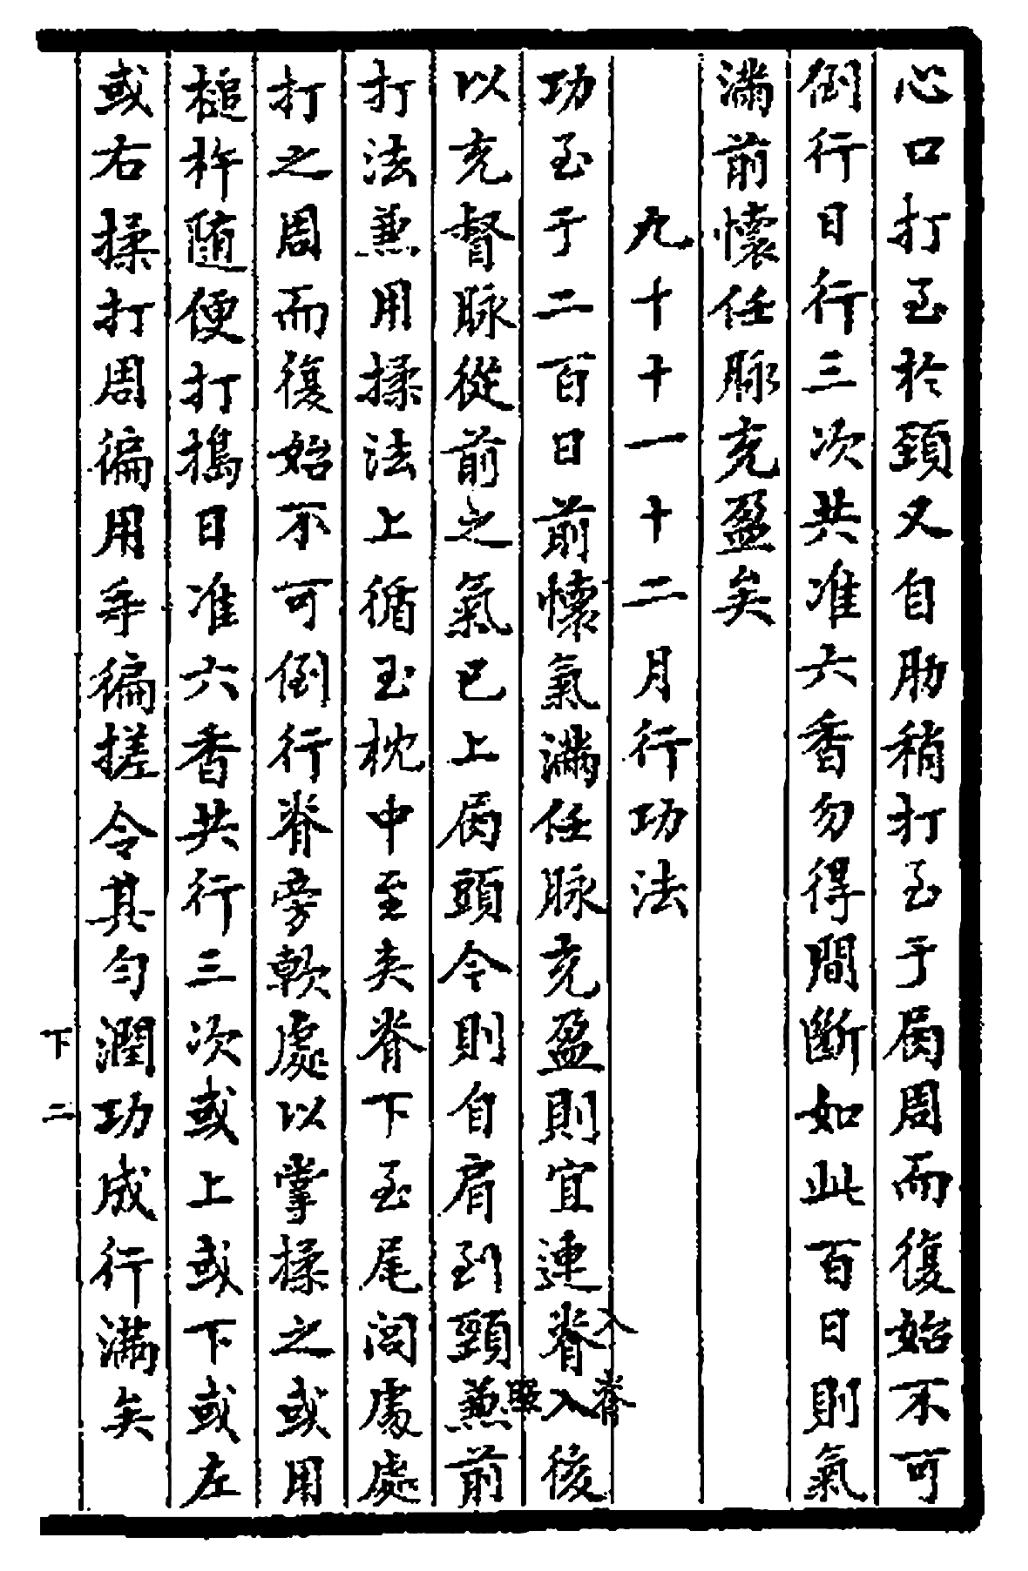 心口打至於頸又自肋稍打至于肩周而復始不可
倒行日行三次共准六香勿得間斷如此百日則氣
滿前懷任脉充盈矣
九十十一十二月行功法
入脊
功至于二百日前懷氣滿任脉充盈則宜連脊入後
以充督脉從前之氣已上肩頭今則自肩到頸兼前
打法兼用揉法上循玉枕中至夾脊下至尾閭處處
打之周而復始不可倒行脊旁軟處以掌揉之或用
槌杵隨便打搗日准六香共行三次或上或下或左
或右揉打周徧用手徧搓令其勻潤功成行滿矣
下二